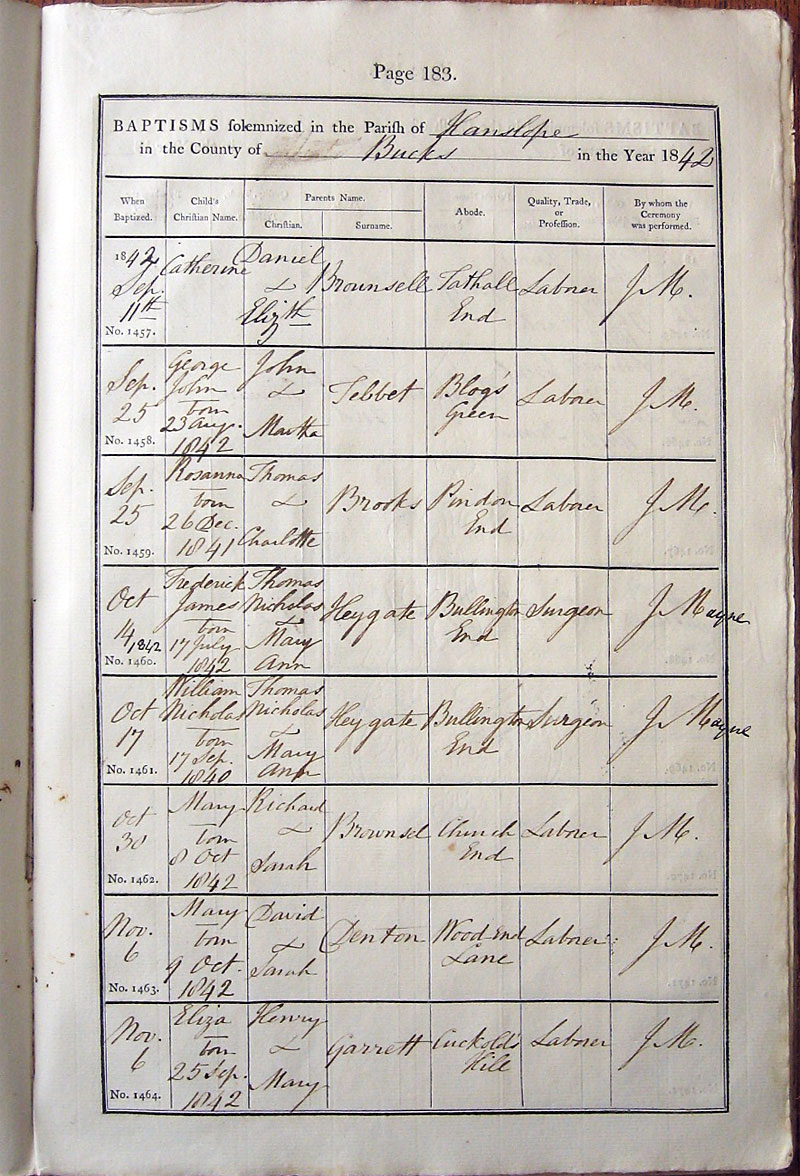 Page 183.
BAPTISMS solemnized in the Parish of Hanslope
in the County of Bucks in the Year 1842
When Baptized. Child's Christian Name. Parents Name. Christian. Surname. Abode. Quality, Trade, or Profession. By whom the Ceremony was performed.
1842 Sep. 11th No. 1457. Catherine Daniel & Elizth Brownsell Tathall End Laborer J M.
Sep. 25 No. 1458. George John born 23 Aug. 1842 John & Martha Tebbet Blog's Green Laborer J M.
Sep. 25 No. 1459. Rosanna born 26 Dec. 1841 Thomas & Charlotte Brooks Pindon End Laborer J M.
Oct 14 1842 No. 1460. Frederick James born 17 July 1842 Thomas Nicholas & Mary Ann Heygate Bullington End Surgeon J Mayne
Oct 17 No. 1461. William Nicholas born 17 Sep. 1840 Thomas Nicholas & Mary Ann Heygate Bullington End Surgeon J Mayne
Oct 30 No. 1462. Mary born 8 Oct 1842 Richard & Sarah Brownsel Church End Laborer J M.
Nov. 6 No. 1463. Mary born 9 Oct. 1842 David & Sarah Denton Wood End Lane Laborer J M.
Nov. 6 No. 1464. Eliza born 25 Sep. 1842 Henry & Mary Garrett Cuckold's Hill Laborer J M.